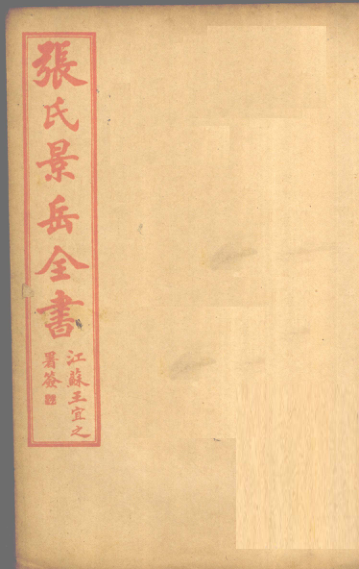 張氏景岳全書
江蘇王宜之
署簽